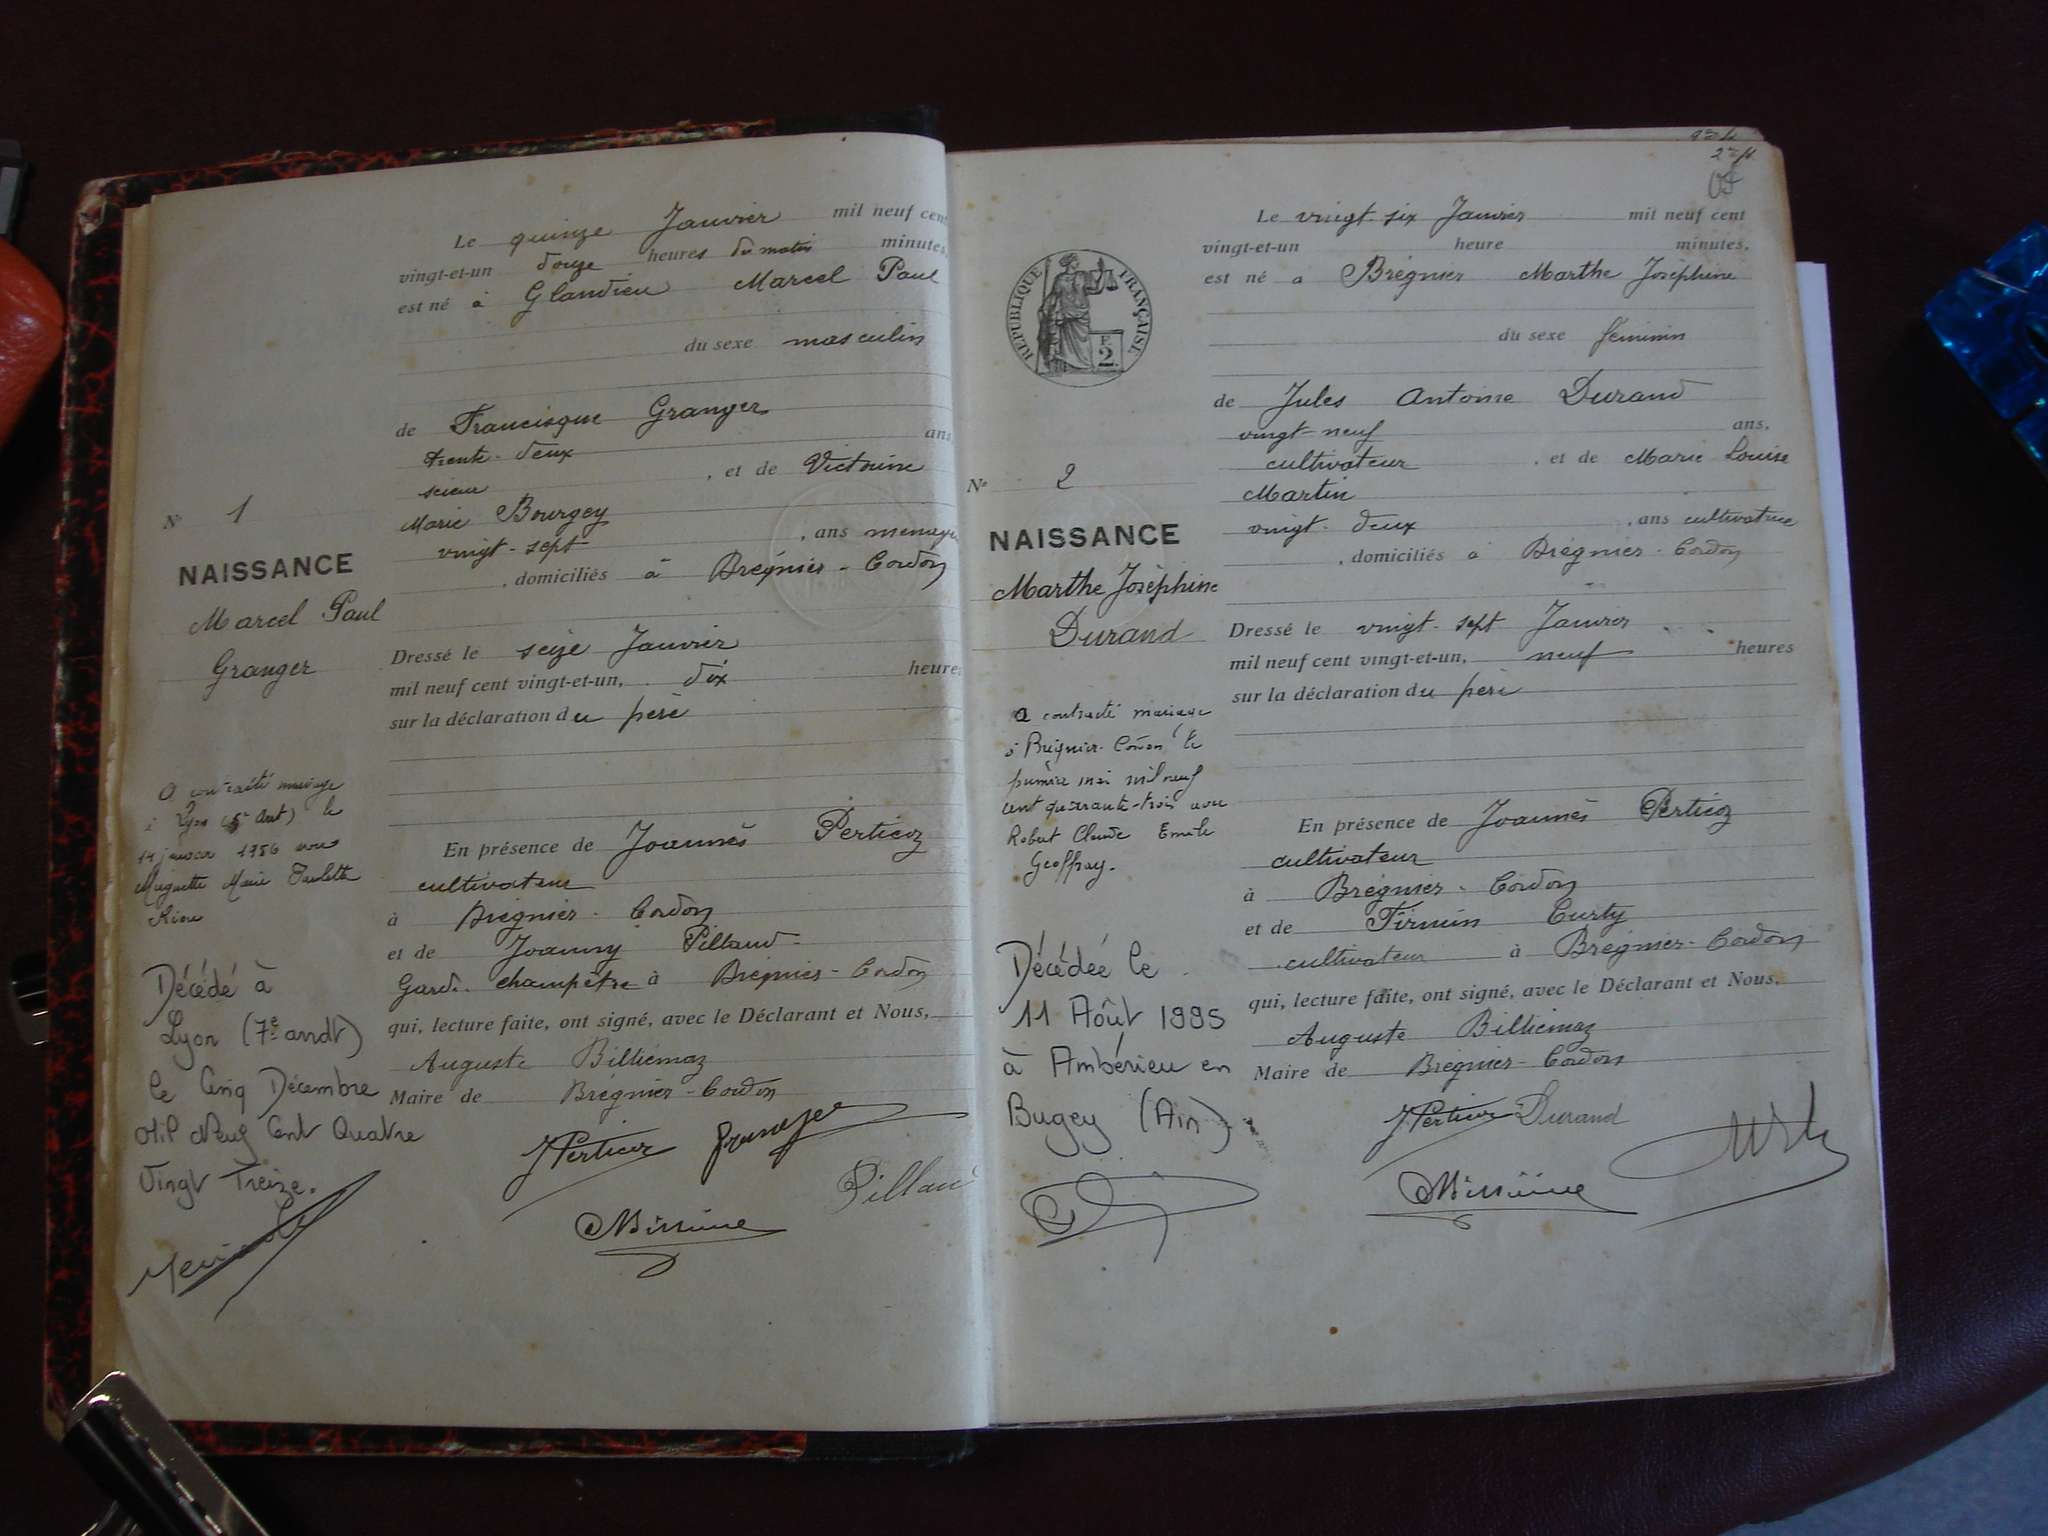 Le quinze Janvier mil neuf cent
vingt-et-un douze heures du matin minutes,
est né à Glandieu Marcel Paul
du sexe masculin
de Francisque Granger
trente-deux ans
scieur, et de Victorine
Marie Bourgey
vingt-sept, ans ménagère
, domiciliés à Brégnier-Cordon
N° 1
NAISSANCE
Marcel Paul
Granger
Dressé le seize Janvier
mil neuf cent vingt-et-un, dix heures
sur la déclaration du père
A contracté mariage
à Lyon (5e Ardt) le
14 janvier 1956 avec
Huguette Marie Paulette
En présence de Joannès Perticoz
cultivateur
à Brégnier-Cordon
et de Joanny Pillaud
Garde champêtre à Brégnier-Cordon
qui, lecture faite, ont signé, avec le Déclarant et Nous,
Auguste Billiémaz
Maire de Brégnier-Cordon
Décédé à
Lyon (7e arrdt)
le Cinq Décembre
Mil Neuf Cent Quatre
Vingt Treize.
JPerticoz Granger
Pillaud
2
Le vingt-six Janvier mil neuf cent
vingt-et-un heure minutes,
est né à Brégnier Marthe Joséphine
du sexe féminin
RÉPUBLIQUE FRANÇAISE
F.
2.
de Jules Antoine Durand
vingt-neuf ans,
cultivateur, et de Marie Louise
Martin
vingt-deux, ans cultivatrice
, domiciliés à Brégnier-Cordon
N° 2
NAISSANCE
Marthe Joséphine
Durand
Dressé le vingt-sept Janvier
mil neuf cent vingt-et-un, neuf heures
sur la déclaration du père
A contracté mariage
à Brégnier-Cordon le
premier mai mil neuf
cent quarante-trois avec
Robert Claude Emile
Geoffray.
En présence de Joannès Perticoz
cultivateur
à Brégnier-Cordon
et de Firmin Curty
cultivateur à Brégnier-Cordon
qui, lecture faite, ont signé, avec le Déclarant et Nous,
Auguste Billiémaz
Maire de Brégnier-Cordon
Décédée le
11 Août 1995
à Ambérieu en
Bugey (Ain)
JPerticoz Durand